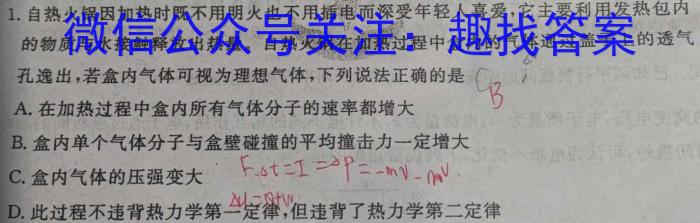 1. 自热火锅因加热时既不用明火也不用插电而深受年轻人喜爱,它主要利用发热包内
的物质与水接触释放出热量。自热火锅在加热过程中
微信公众号关注:趣找答案
的透气
孔逸出,若盒内气体可视为理想气体,下列说法正确的是
B
A. 在加热过程中盒内所有气体分子的速率都增大
B. 盒内单个气体分子与盒壁碰撞的平均撞击力一定增大
C. 盒内气体的压强变大
F·Δt=I=ΔP=-mv-mv
ΔU=Q+W
D. 此过程不违背热力学第一定律,但违背了热力学第二定律